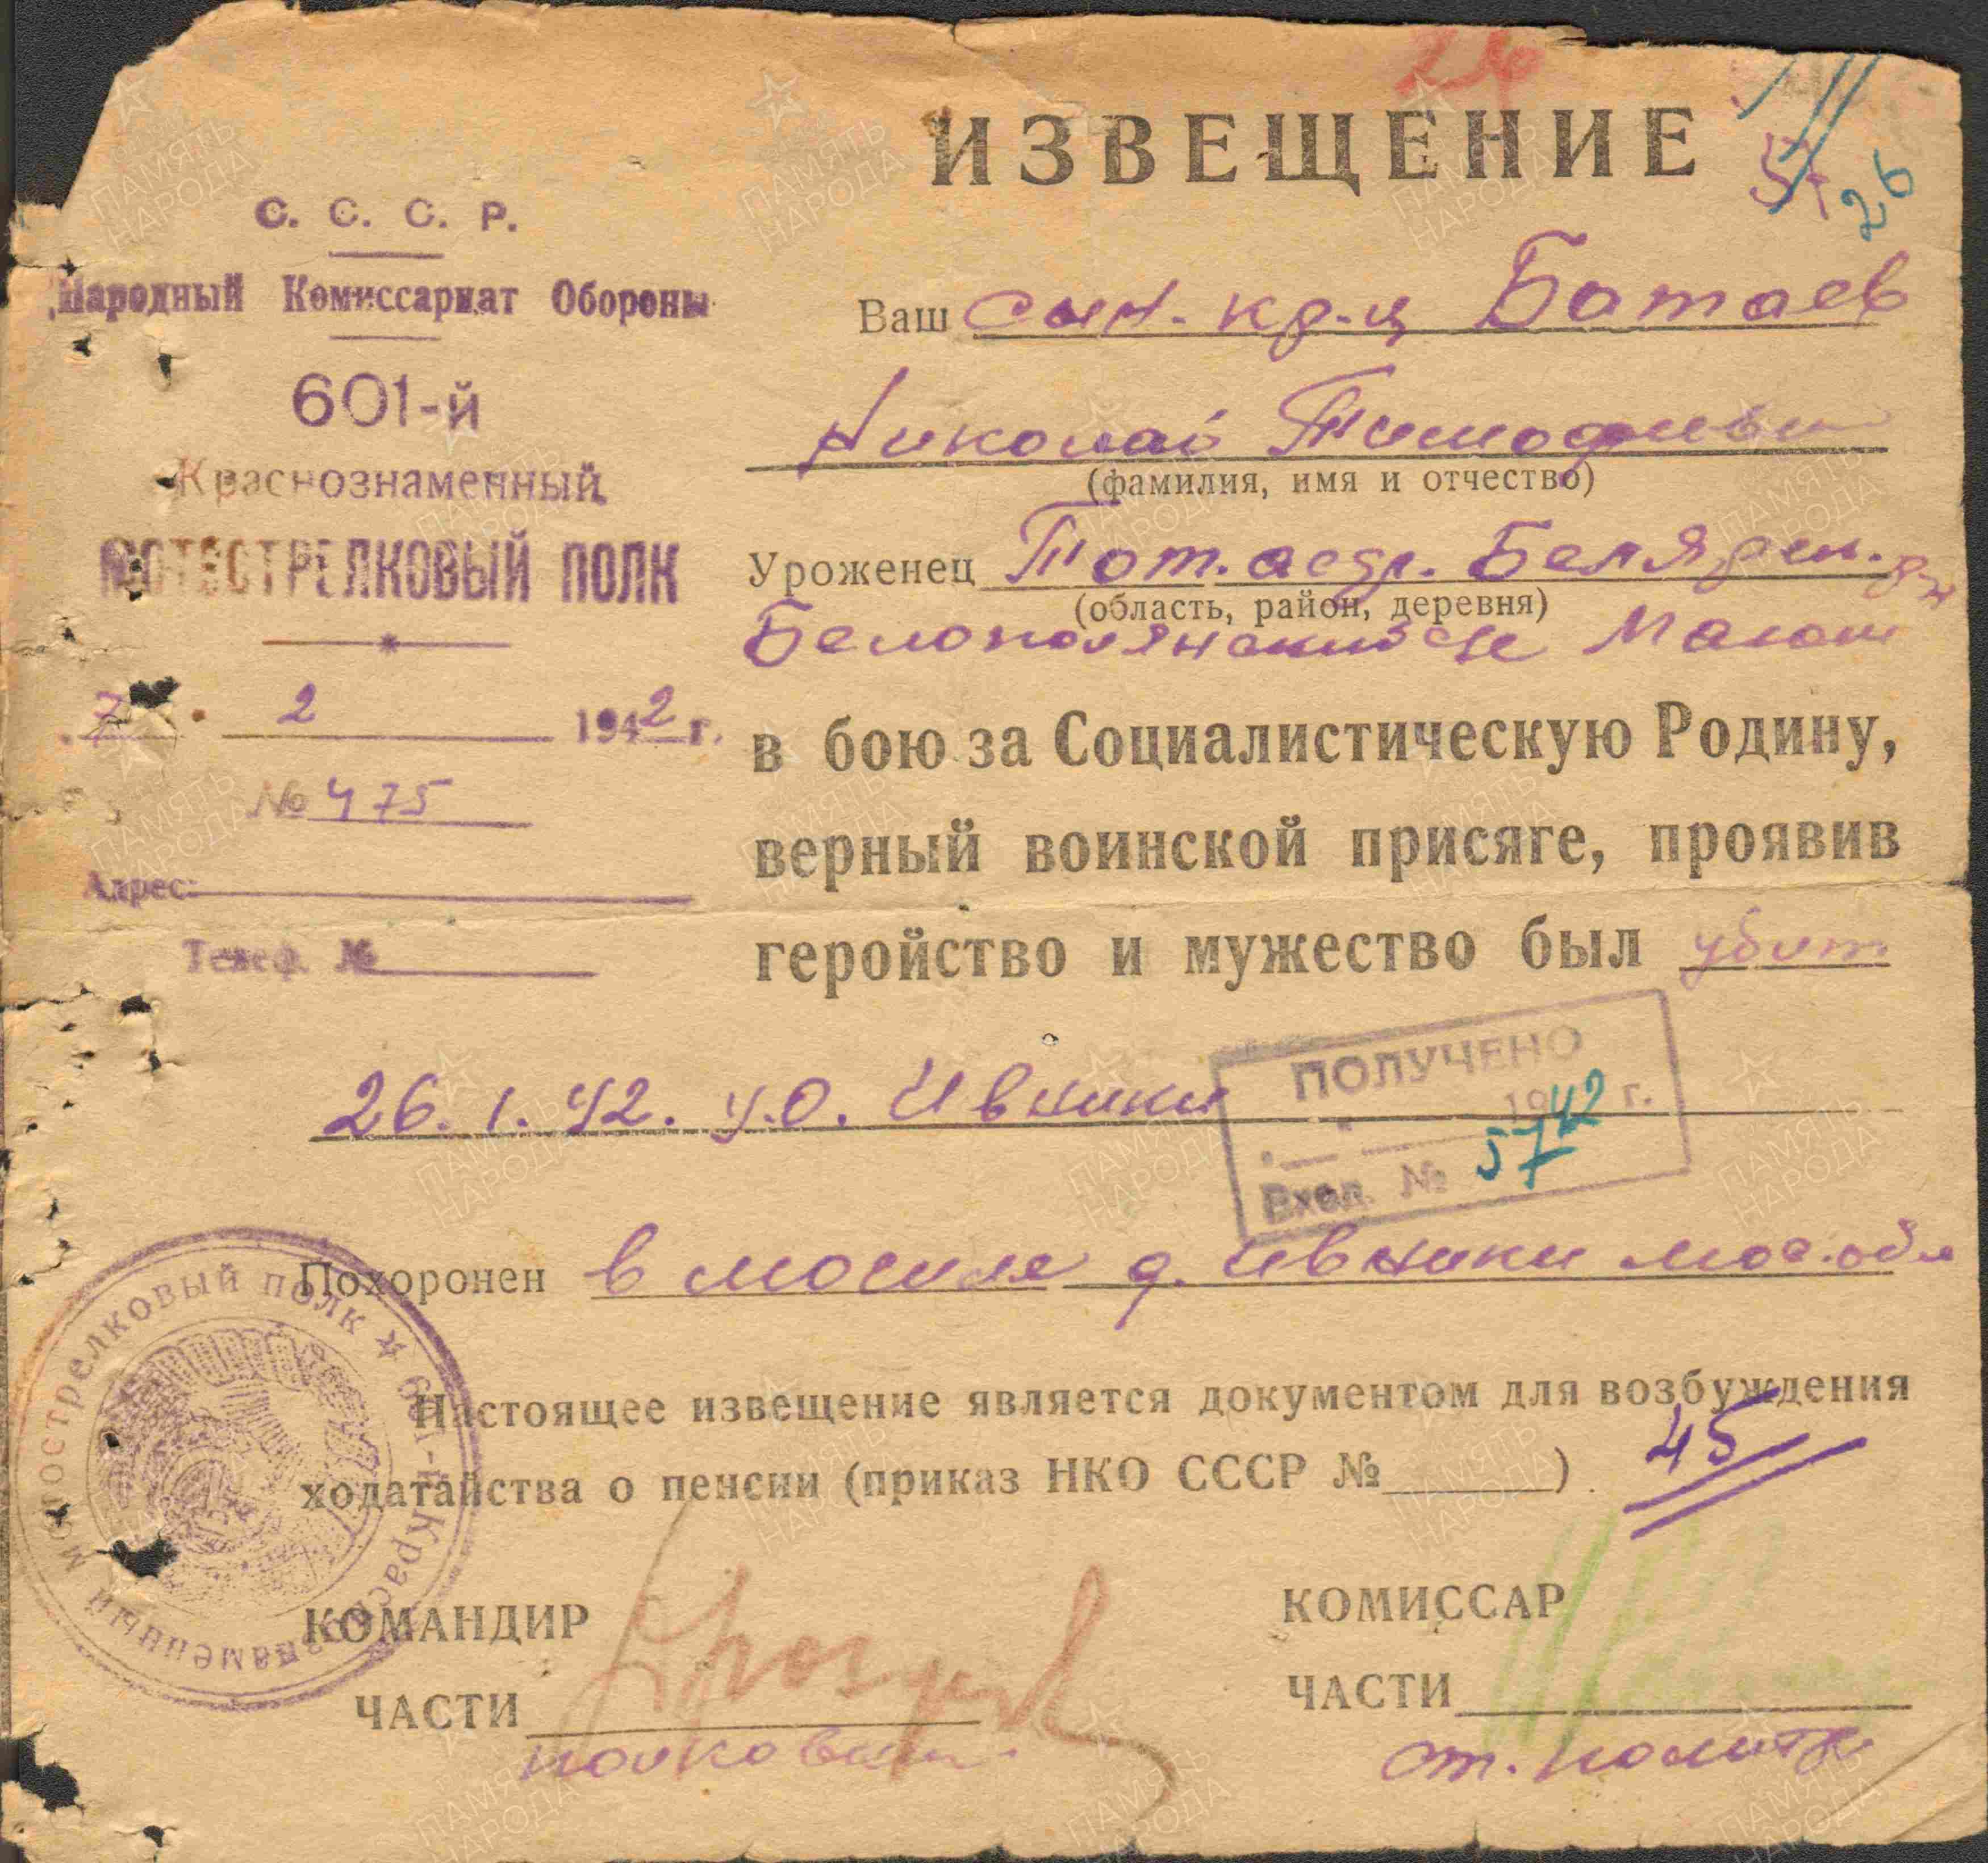 ИЗВЕЩЕНИЕ
26
С. С. С. Р.
Народный Комиссариат Обороны
601-й
Краснознаменный
МОТОСТРЕЛКОВЫЙ ПОЛК
7 2 1942 г.
№ 475
Адрес:
Телеф. №
Ваш сын. кр-ц Батаев
Николай Тимофееви
(фамилия, имя и отчество)
Уроженец Тат. асср. Беляр
(область, район, деревня)
Белополянский
в бою за Социалистическую Родину,
верный воинской присяге, проявив
геройство и мужество был убит
26. 1. 42. у.д. Ивники
ПОЛУЧЕНО
1942 г.
Вход. № 57
Похоронен в могиле д. Ивники мос. обл
Настоящее извещение является документом для возбуждения
ходатайства о пенсии (приказ НКО СССР № )
45
КОМАНДИР
ЧАСТИ
полковник
КОМИССАР
ЧАСТИ
ст. политр
601-й Краснознаменный мотострелковый полк
ПАМЯТЬ НАРОДА